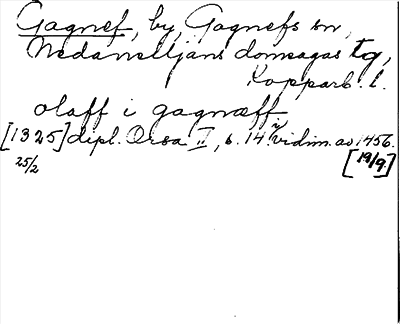 Gagnef, by, Gagnefs sn,
Nedansiljans domsagas tg,
Kopparb. l.
olaff i gagnæff
[1325] dipl. Orsa II, s. 14. i vidim. av 1456.
25/2 [19/9.]